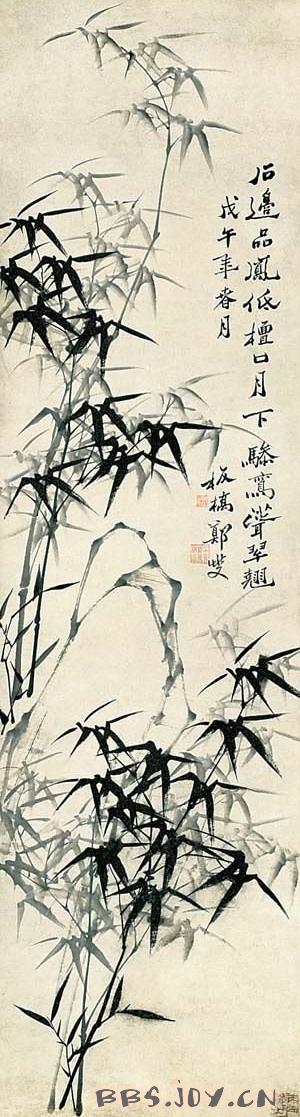 石邊品鳳低檀口月下驂鸞聳翠翹
戊午年春月
板橋鄭燮
BBS.JOY.CN